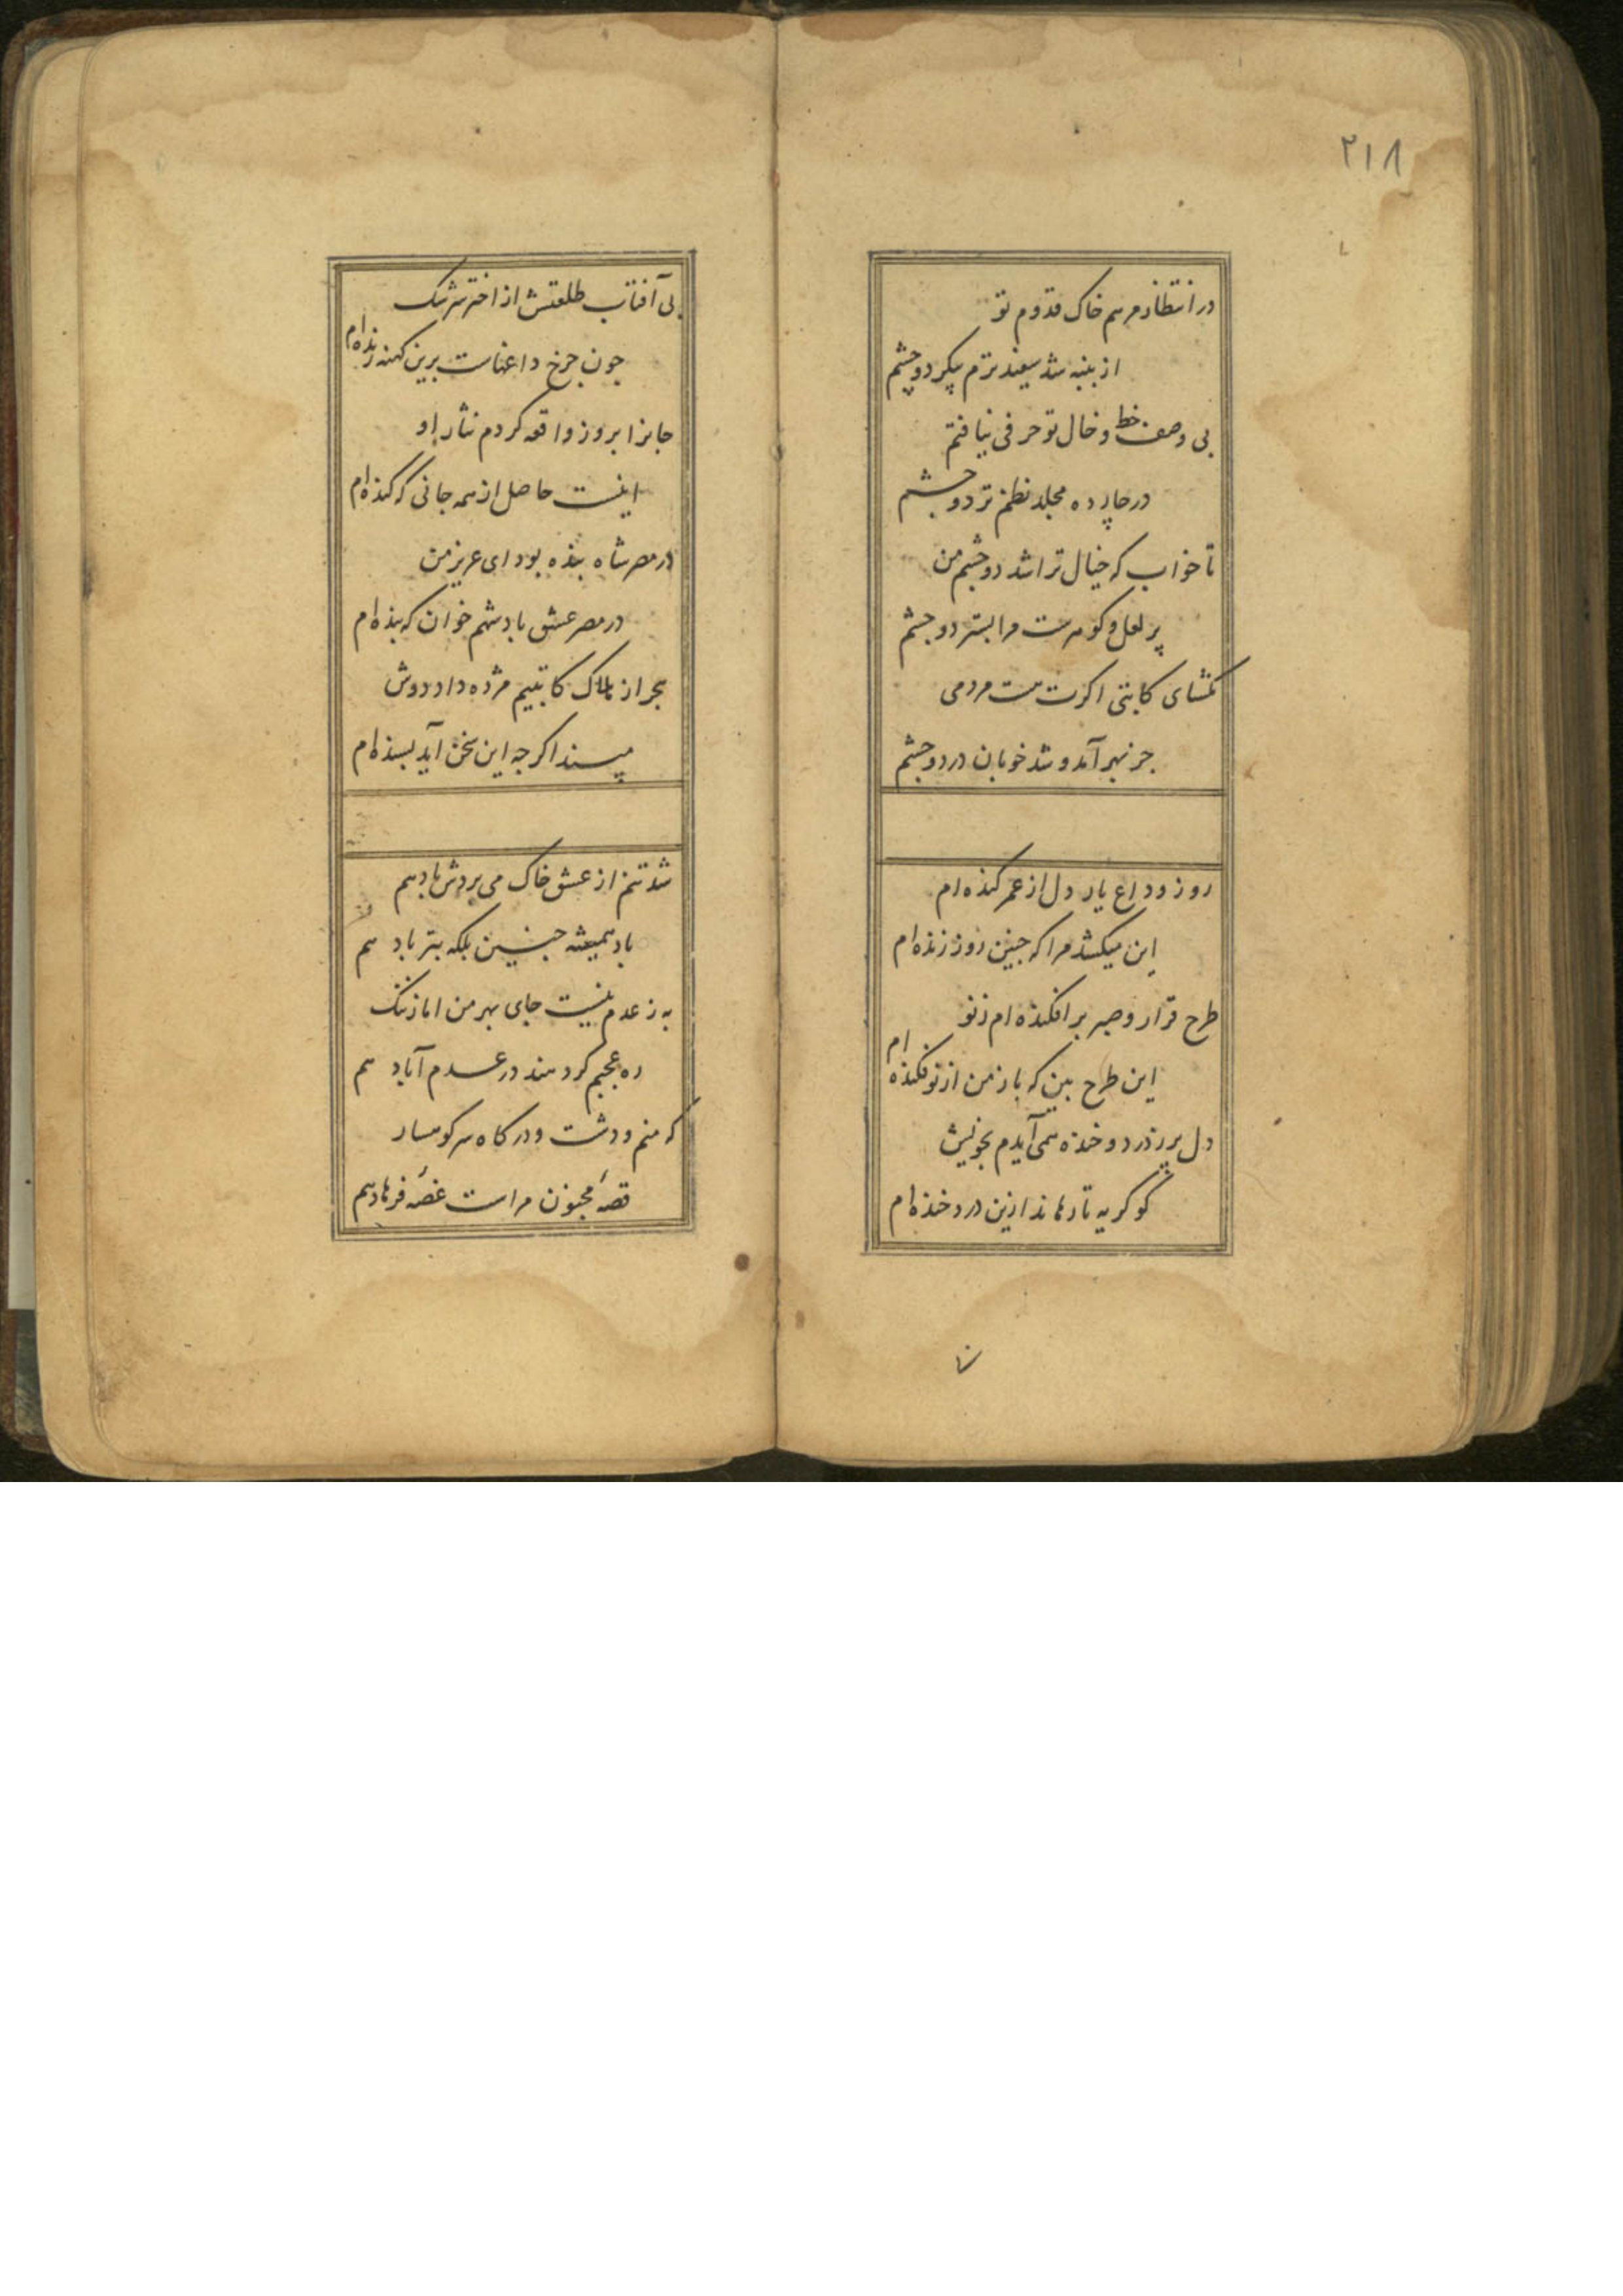 ۲۱۸
در انتظار مرهم خاک قدوم تو
از پنبه شد سفیدترم پیکر دو چشم
بی وصف خط و خال تو حرفی نیافتم
در چارده مجلد نظم تر دو چشم
تا خواب که خیال ترا شد دو چشم من
پر لعل و گوهرست مرا بستر دو چشم
بگشای کاتبی اگرت هست مردمی
جز بهر آمد و شد خوبان در دو چشم
روز وداع یار دل از عمر کنده‌ام
این میکشد مرا که چنین روز زنده‌ام
طرح قرار و صبر برافکنده‌ام ز نو
این طرح بین که باز من از نو فکنده‌ام
دل پر ز درد و خنده همی آیدم بخویش
کو گریه تا رهاند ازین درد خنده‌ام
بی آفتاب طلعتش از اختر سرشک
چون چرخ داغهاست برین کهنه ژنده‌ام
جانرا بروز واقعه کردم نثار او
اینست حاصل از همه جانی که کنده‌ام
در مصر شاه بنده بود ای عزیز من
در مصر عشق پادشهم خوان که بنده‌ام
هجر از هلاک کاتبیم مژده داد دوش
مپسند اگر چه این سخن آید پسنده‌ام
شد تنم از عشق خاک می بردش باد هم
باد همیشه چنین بلکه بتر باد هم
به ز عدم نیست جای بهر من اما ز ننگ
ره عجبم گر دهند در عدم آباد هم
گه منم و دشت و در گاه سر کوهسار
قصهٔ مجنون مراست غصهٔ فرهاد هم